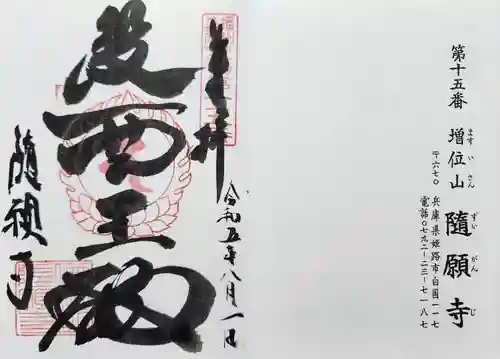 第十五番
増位山
ますいさん
隨願寺
ずいがんじ
〒六七〇
兵庫県姫路市白国一一七
電話〇七九二-二三-七一八七
奉拝
令和五年八月一日
王
隨願寺